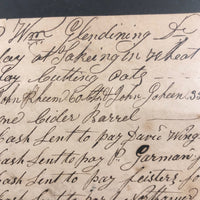 Wm Glendining Dr
day at takeing in wheat
day Cutting oats
John Rheem Cotts John Joheen 33
one Cider Barrel
Cash sent to pay David Wing
Cash sent to pay P. Garman
Cash sent to pay Leislers for
Cash sent to